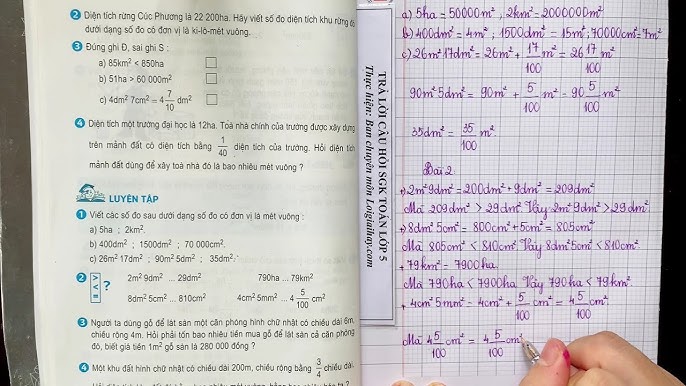 2 Diện tích rừng Cúc Phương là 22 200ha. Hãy viết số đo diện tích khu rừng đó
dưới dạng số đo có đơn vị là ki-lô-mét vuông.
3 Đúng ghi Đ, sai ghi S :
a) 85km² < 850ha
b) 51ha > 60 000m²
c) 4dm² 7cm² = 4 7/10 dm²
4 Diện tích một trường đại học là 12ha. Toà nhà chính của trường được xây dựng
trên mảnh đất có diện tích bằng 1/40 diện tích của trường. Hỏi diện tích
mảnh đất dùng để xây toà nhà đó là bao nhiêu mét vuông ?
LUYỆN TẬP
1 Viết các số đo sau dưới dạng số đo có đơn vị là mét vuông :
a) 5ha ; 2km².
b) 400dm² ; 1500dm² ; 70 000cm².
c) 26m² 17dm² ; 90m² 5dm² ; 35dm².
2 > < = ? 2m² 9dm² ... 29dm² 790ha ... 79km²
8dm² 5cm² ... 810cm² 4cm² 5mm² ... 4 5/100 cm²
3 Người ta dùng gỗ để lát sàn một căn phòng hình chữ nhật có chiều dài 6m,
chiều rộng 4m. Hỏi phải tốn bao nhiêu tiền mua gỗ để lát sàn cả căn phòng
đó, biết giá tiền 1m² gỗ sàn là 280 000 đồng ?
4 Một khu đất hình chữ nhật có chiều dài 200m, chiều rộng bằng 3/4 chiều dài.
TRẢ LỜI CÂU HỎI SGK TOÁN LỚP 5
Thực hiện: Ban chuyên môn Loigiaihay.com
a) 5ha = 50000m², 2km² = 2000000m²
b) 400dm² = 4m² ; 1500dm² = 15m² ; 70000cm² = 7m²
c) 26m² 17dm² = 26m² + 17/100 m² = 26 17/100 m²
90m² 5dm² = 90m² + 5/100 m² = 90 5/100 m²
35dm² = 35/100 m².
Bài 2:
+ 2m² 9dm² = 200dm² + 9dm² = 209dm²
Mà 209dm² > 29dm² Vậy 2m² 9dm² > 29dm²
+ 8dm² 5cm² = 800cm² + 5cm² = 805cm²
Mà 805cm² < 810cm² Vậy 8dm² 5cm² < 810cm²
+ 79km² = 7900ha
Mà 790ha < 7900ha Vậy 790ha < 79km²
+ 4cm² 5mm² = 4cm² + 5/100 cm² = 4 5/100 cm²
Mà 4 5/100 cm² = 4 5/100 cm²